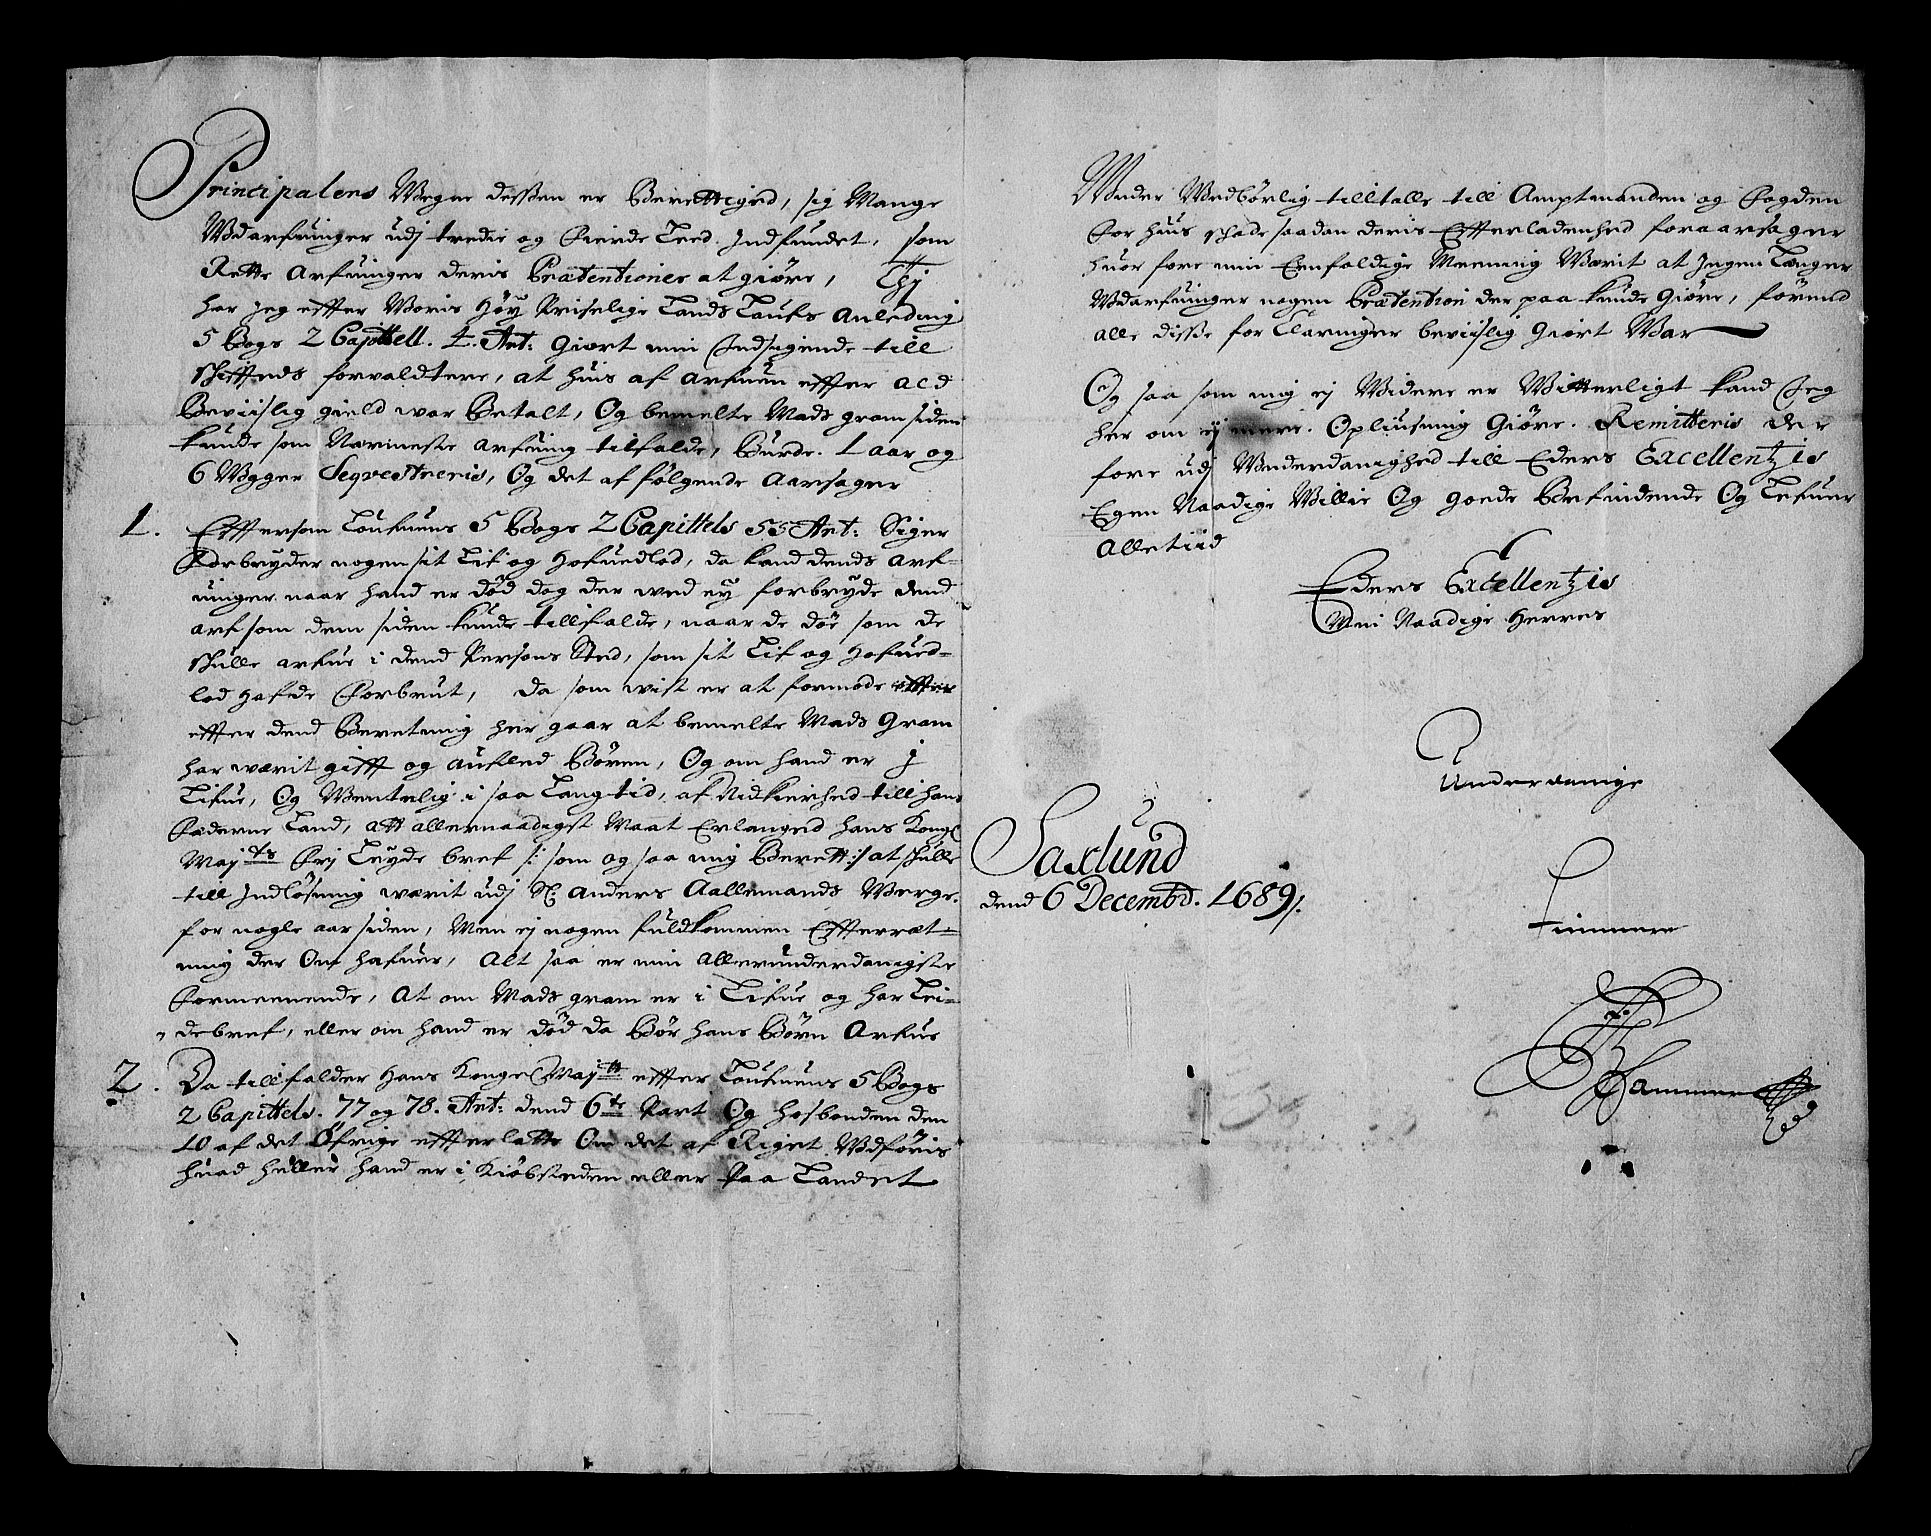 Principalens Wegne dessen er Berettiget, sig Mange
Udarfuinger udj tredie og Fierde Leed. Indfundet, som
Rette Arfuinger deris Prætentioner at giöre, Thj
har jeg effter Woris Höy Priselige Lands Loufs Anledning
5 Bogs 2 Capittell. 4. Art: Giort min Indsigende till
Schiffteds forvaldtere, at huis af arfuen effter all
Beviislig gield war Betalt, Og bemelte Mads gram siden
kunde som Nærmeste arfuing tilfalde, Burde. 1 aar og
6 Wgger Seqvestreris, Og det af fölgende Aarsager
1. Efftersom Loufuens 5 Bogs 2 Capittels 55 Art: Siger
Forbryder nogen sit Lif og Hofuedlod, da kand dends arf-
uinger naar hand er död dog der wed ey forbryde dend
arf som dem siden kunde tillfalde, naar de döe som de
skulle arfue i dend Persons Sted, som sit Lif og Hofued-
lod hafde Forbrut, da som wist er at formode
effter dend Beretning her gaar at bemelte Mads Gram
har wærit gifft og aufled Börn, Og om hand er j
Lifue, Og Wentelig i saa Lang tid, af Nidkierhed till hans
Fæderne Land, att allernaadigst Maat Erlanged hans Kongl
Maj:ts Frj Leyde bref /: som og saa mig Berett :/ at skulle
till Indlösning wærit udj Sl: Anders Aallemands Werge.
for nogle aar siden, Men ej nogen fuldkommen Efterræt-
ning der Om hafuer, Alt saa er min allerunderdanigste
Formeenende, At om Mads gram er i Lifue og har Lei-
debref, eller om hand er död da Bör hans Börn Arfue
2. Da tillfalder Hans Konge Maj:tt effter Loufuens 5 Bogs
2 Capittels. 77 og 78. Art: dend 6te Part Og Hosbonden den
10 af det Öfrige effterlatte Om det af Riget Udföris
huad heller hand er i Kiöbsteden eller Paa Landet
Under Wedbörlig tilltalle till Amptmanden og Fogden
for huis skade saadan deris Effterladenhed foraarsager
huor fore min Eenfoldige Meening Wærit at Ingen Længer
Udarfuinger nogen Prætention der paa kunde Giöre, förend
alle disse for Claringer beviislig Giört War
Og saa som mig ej Widere er Witterligt kand Jeg
her om ej mere Opliusning Giöre. Remitteris der
fore udj Underdanighed till Eders Excellentzis
Egen Naadige Willie Og goede Befindende Og Lefuer
Alletiid
Eders Excellentzis
Min Naadige Herres
Underdanige
Saxlund
dend 6 Decembd. 1689/.
Hammer